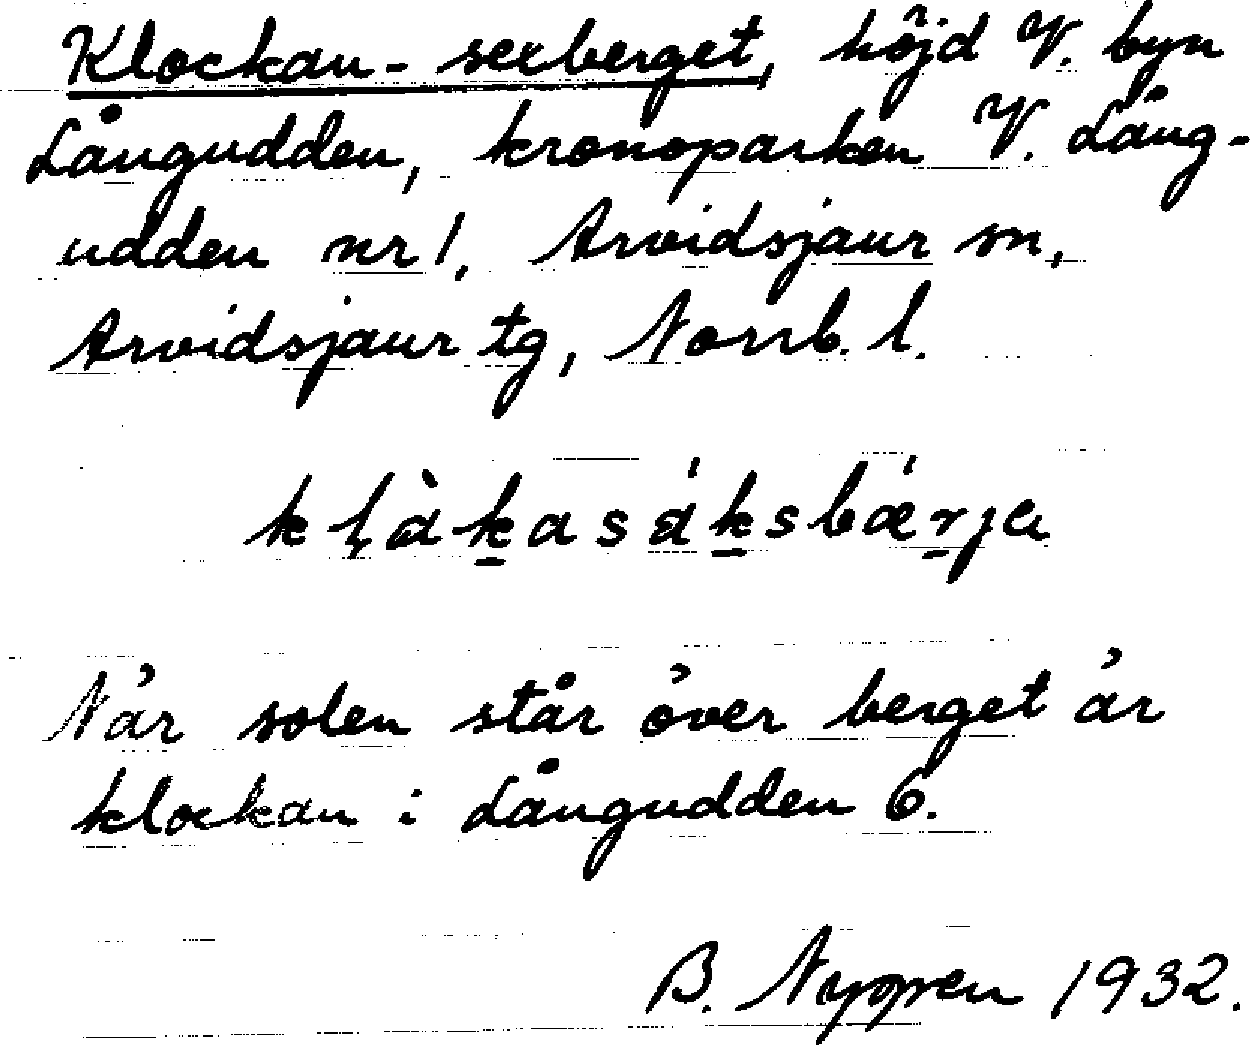 Klockan-sexberget, höjd V. byn
Långudden, kronoparken V. Lång-
udden nr 1, Arvidsjaur sn,
Arvidsjaur tg, Norrb. l.
kḷàk̠asák̠sbær̠ja
När solen står över berget är
klockan i Långudden 6.
B. Nyppen 1932.